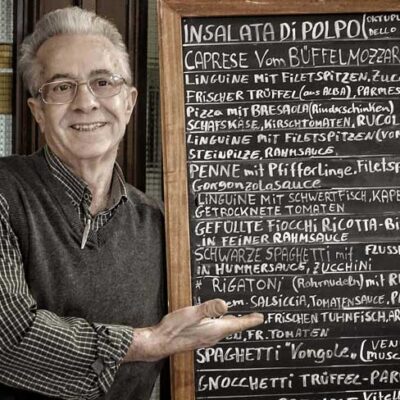 INSALATA Di POLPO (OKTOPU
DELLO
CAPRESE Vom BÜFFELMOZZAR
LINGUINE MIT FILETSPITZEN, ZUC
FRISCHER TRÜFFEL (aus ALBA), PARMES
Pizza mit BRESAOLA (Rinderschinken)
SCHAFSKÄSE, KIRSCHTOMATEN, RUCOL
LINGUINE MIT FILETSPITZEN (VOM
STEINPILZE, RAHMSAUCE
PENNE mit Pfifferlinge, Filetsp
Gorgonzolasauce
LINGUINE MIT SCHWERTFISCH, KAPE
GETROCKNETE TOMATEN
GEFÜLLTE FIOCCHI RICOTTA-Bi
IN FEINER RAHMSAUCE
SCHWARZE SPAGHETTI mit FLUSS
IN HUMMERSAUCE, ZUCCHINI
* RIGATONI (Rohrnudeln) mit R
em. SALSICCIA, TOMATENSAUCE, P
FRISCHEN THUNFISCH, AR
FR. TOMATEN
SPAGHETTI "Vongole" (VEN
MUSC
GNOCCHETTI TRÜFFEL-PAR
Vitell